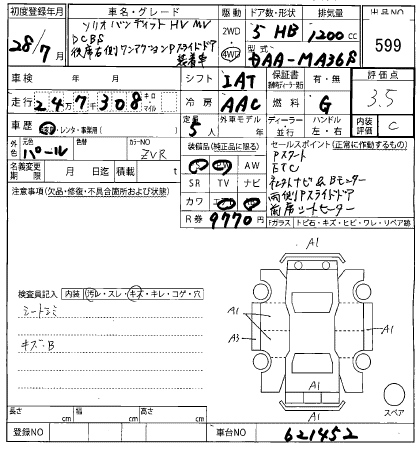 初度登録年月 車名・グレード 駆動 ドア数・形状 排気量 出品NO
28/7 ソリオバンディット HV MV 2WD 5 HB 1200cc 599
DCBS 4WD 型式
後席右側ワンアクションPスライドドア DAA-MA36S
装着車
車検 年 月 シフト IAT 保証書 有・無 評価点
走行 247308 キロ マイル 冷房 AAC 燃料 G 3.5
車歴 自家・レンタ・事業用( ) 定員 5人 外車モデル 年 ディーラー 並行 ハンドル 左・右 内装評価 C
外色 元色 パール 色替 カラーNO ZVR
装備品(純正品に限る) セールスポイント(正常に作動するもの)
PS PW AW Pスタート
名義変更期限 月 日 積載 t SR TV ナビ ETC
注意事項(欠品・修復・不具合箇所および状態) カワ
両側Pスライドドア
前席シートヒーター
R券 9770円 Fガラス トビ石・キズ・ヒビ・ワレ・リペア跡
A1
検査員記入 内装 汚レ・スレ・キズ・キレ・コゲ・穴
シートシミ
A1 A1
キズ・B A3
A1
A1
スペア
長さ cm 幅 cm 高さ cm
登録NO 年 月 日 車台NO 621452